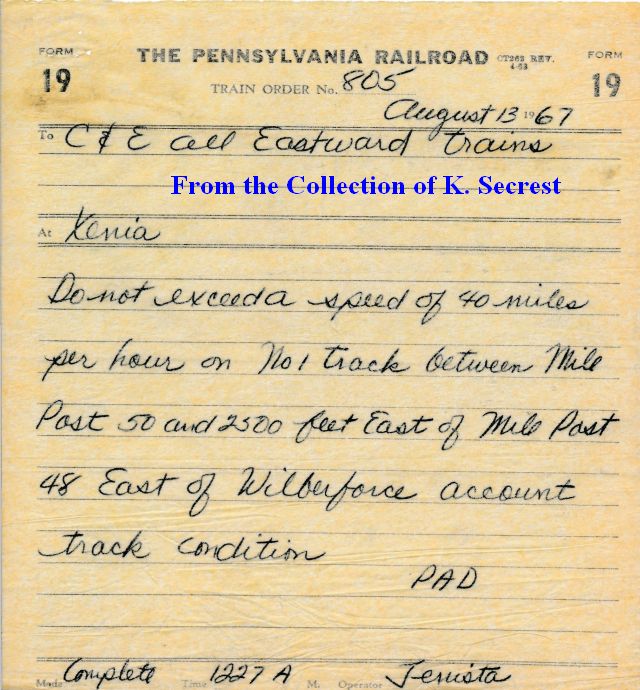 FORM 19 THE PENNSYLVANIA RAILROAD CT263 REV. 4-53 FORM 19
TRAIN ORDER No. 805
August 13 1967
To C & E all Eastward trains
From the Collection of K. Secrest
At Xenia
Do not exceed a speed of 40 miles
per hour on No 1 track between Mile
Post 50 and 2500 feet East of Mile Post
48 East of Wilberforce account
track condition
PAD
Made Complete Time 1227 A M. Operator Jenista